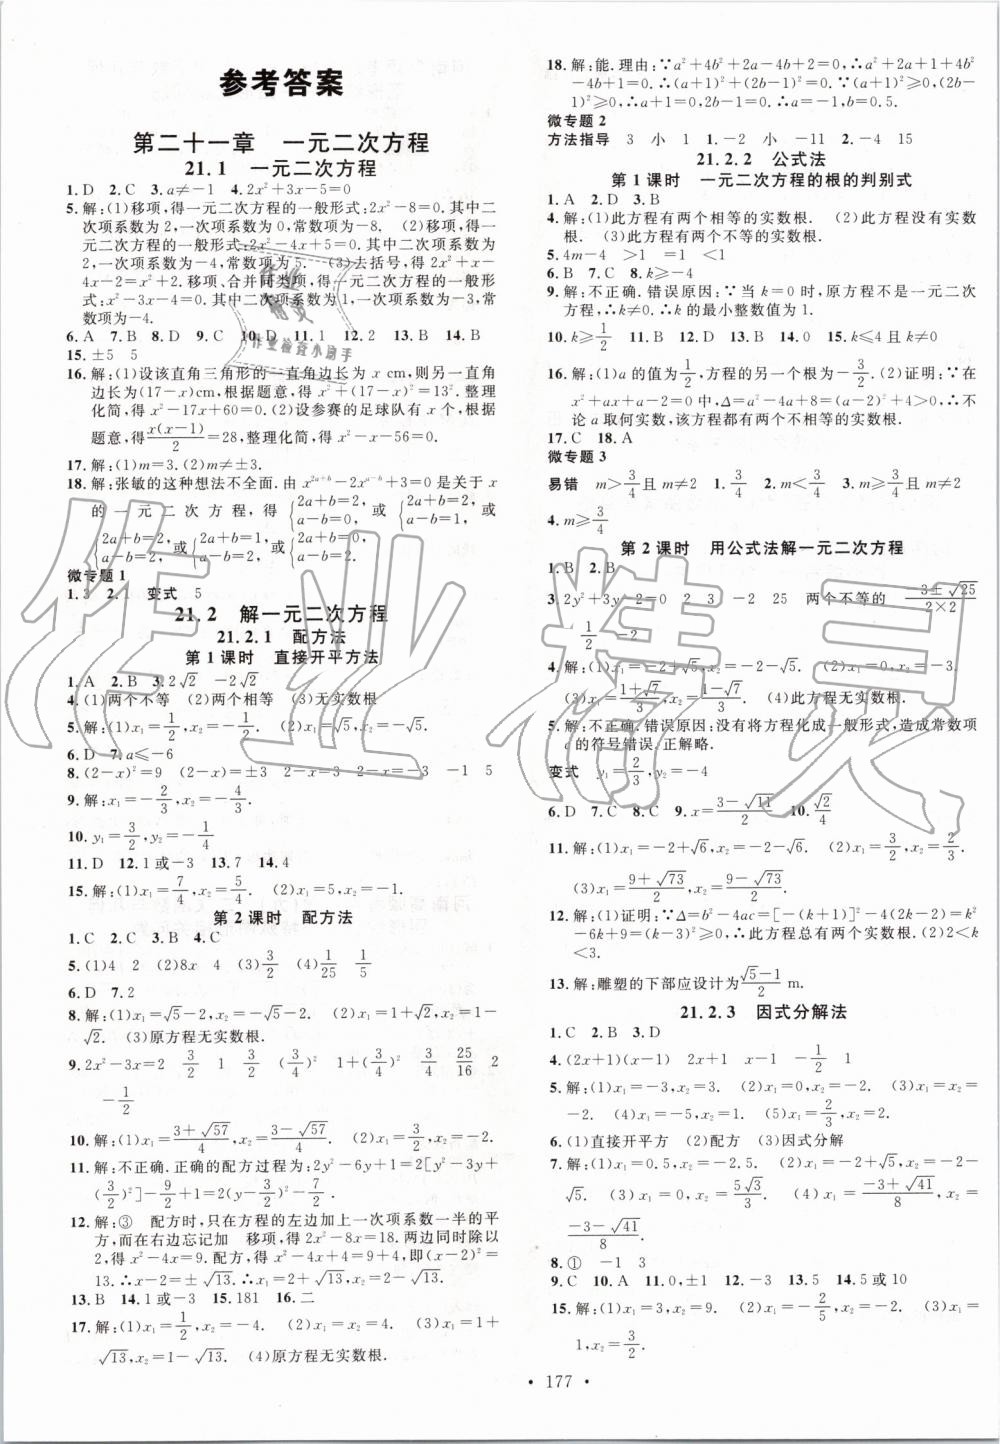 参考答案
第二十一章 一元二次方程
21.1 一元二次方程
1.D 2.C 3.a≠-1 4.2x²+3x-5=0
5.解:(1)移项,得一元二次方程的一般形式:2x²-8=0.其中二
次项系数为2,一次项系数为0,常数项为-8. (2)移项,得一
元二次方程的一般形式:2x²-4x+5=0.其中二次项系数为
2,一次项系数为-4,常数项为5. (3)去括号,得
4x=3x-2+2x².移项、合并同类项,得一元二次方程的一般形
式:2x²-x-2=0.
常数项为-4.
6.A 7.B 8.D 9.C 10.D 11.1 12.2 13.B 14.B
15.±5 5
16.解:(1)设该直角三角形的一直角边长为x cm,则另一直角
边长为(17-x)cm,根据题意,得x²+(17-x)²=13².整理
化简,得x²-17x+60=0.(2)设参赛的足球队有x个,根据
题意,得x(x-1)/2=28,整理化简,得x²-x-56=0.
17.解:(1)m=3.(2)m≠±3.
18.解:张敏的这种想法不全面.由x^(2a+b)-2x^(a-b)+3=0是关于x
的一元二次方程,得{2a+b=2, a-b=2 或{2a+b=2, a-b=0 或
{2a+b=2, a-b=1 或{2a+b=1, a-b=2 或{2a+b=0, a-b=2.
微专题1
1.3 2.1 变式 5
21.2 解一元二次方程
21.2.1 配方法
第1课时 直接开平方法
1.A 2.B 3.2√2 -2√2
4.(1)两个不等 (2)两个相等 (3)无实数根
5.解:(1)x₁=1/2,x₂=-1/2. (2)x₁=√5,x₂=-√5.
6.D 7.a≤-6
8.(2-x)²=9 (2-x)=±3 2-x=3 2-x=-3 -1 5
9.解:x₁=-2/3,x₂=-4/3.
10.y₁=3/2,y₂=-1/4
11.D 12.1或-3 13.2 14.4
15.解:(1)x₁=7/4,x₂=5/4. (2)x₁=2,x₂=0.
第2课时 配方法
1.C 2.C 3.B 4.C
5.(1)4 2 (2)8x 4 (3)3/2 (4)1/25 1/5
6.D 7.2
8.解:(1)x₁=√5-2,x₂=-√5-2. (2)x₁=1+√2,x₂=1-
√2. (3)原方程无实数根.
9.2x²-3x=2 3/2 1 3/2 (3/4)² 1+(3/4)² 3/4 25/16 2
-1/2
10.解:(1)x₁=(3+√57)/4,x₂=(3-√57)/4. (2)x₁=3/2,x₂=-2.
11.解:不正确.正确的配方过程为:2y²-6y+1=2[y²-3y+
(3/2)²]-9/2+1=2(y-3/2)²-7/2.
12.解:③ 配方时,只在方程的左边加上一次项系数一半的平
方,而在右边忘记加 移项,得2x²-8x=18.两边同时除以
2,得x²-4x=9.配方,得x²-4x+4=9+4,即(x-2)²=
13.∴x-2=±√13.∴x₁=2+√13,x₂=2-√13.
13.B 14.1或-3 15.181 16.二
17.解:(1)x₁=1/2,x₂=-4. (2)x₁=4,x₂=-2. (3)x₁=1+
√13,x₂=1-√13. (4)原方程无实数根.
18.解:能.理由:∵a²+4b²+2a-4b+2=0,∴a²+2a+1+4b²
-4b+1=0.∴(a+1)²+(2b-1)²=0.∵(a+1)²≥0,(2b
-1)²≥0,∴a+1=0,2b-1=0.∴a=-1,b=0.5.
微专题2
方法指导 3 小 1 1.-2 小 -11 2.-4 15
21.2.2 公式法
第1课时 一元二次方程的根的判别式
1.A 2.D 3.B
4.解:(1)此方程有两个相等的实数根. (2)此方程没有实数
根. (3)此方程有两个不相等的实数根.
5.4m-4 >1 =1 <1
6.B 7.C 8.k≥-4
9.解:不正确.错误原因:∵当k=0时,原方程不是一元二次
方程,∴k≠0.∴k的最小整数值为1.
10.k≥1/2 11.D 12.B 13.A 14.B 15.k≤4且k≠0
16.解:(1)a的值为1/2,方程的另一根为-3/2.(2)证明:∵在
x²+ax+a-2=0中,Δ=a²-4a+8=(a-2)²+4>0,∴不
论a取何实数,该方程都有两个不相等的实数根.
17.C 18.A
微专题3
易错 m>3/4且m≠2 1.3/4 2.m<3/4 3.m≥3/4且m≠2
4.m≥3/4
第2课时 用公式法解一元二次方程
1.B 2.B
3.2y²+3y-2=0 2 3 -2 25 两个不等的 (-3±√25)/(2×2)
1/2 -2
(3)x₁=(1+√7)/3,x₂=(1-√7)/3. (4)此方程无实数根.
5.解:不正确.错误原因:没有将方程化成一般形式,造成常数项
c的符号错误.正解略.
变式 y₁=2/3,y₂=-4
6.D 7.C 8.C 9.x=(3-√11)/2 10.√2/4
11.解:(1)x₁=-2+√6,x₂=-2-√6. (2)x₁=3/2,x₂=2/3.
(3)x₁=(9+√73)/2,x₂=(9-√73)/2.
12.解:(1)证明:∵Δ=b²-4ac=[-(k+1)]²-4(2k-2)=k²
-6k+9=(k-3)²≥0,∴此方程总有两个实数根.(2)2<k
<3.
13.解:雕塑的下部应设计为(√5-1)/2 m.
21.2.3 因式分解法
1.C 2.B 3.D
4.(2x+1)(x-1) 2x+1 x-1 -1/2 1
5.解:(1)x₁=-3,x₂=3. (2)x₁=x₂=1. (3)x₁=3,x₂=
-2. (4)x₁=2/3,x₂=2.
6.(1)直接开平方 (2)配方 (3)因式分解
7.解:(1)x₁=0.5,x₂=-2.5. (2)x₁=-2+√5,x₂=-2-
√5. (3)x₁=0,x₂=5√3/3. (4)x₁=(-3+√41)/8,x₂=
(-3-√41)/8.
8.① -1 3
9.C 10.A 11.0,±1 12.-3 13.5 14.5或10
15.解:(1)x₁=3,x₂=9. (2)x₁=-2/5,x₂=2. (3)x₁=
1,x₂=3/2.
· 177 ·
作业精灵
作业检查小助手